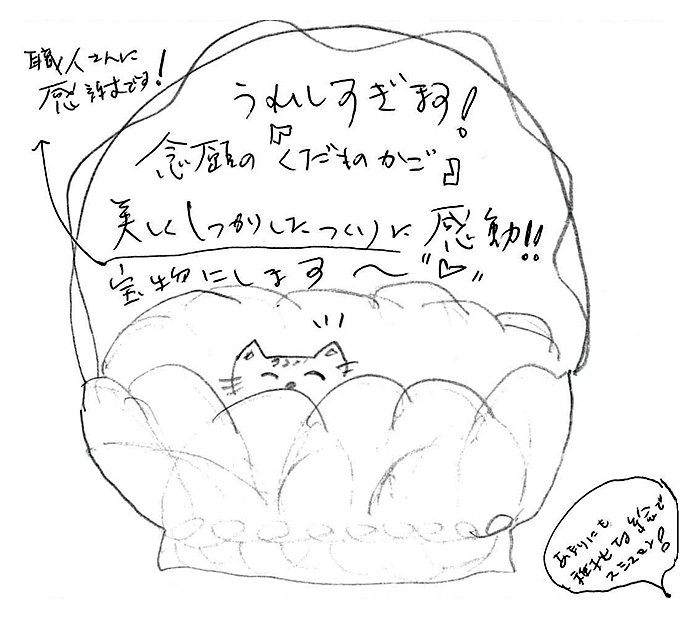 職人さんに
感謝です!
うれしすぎます!
念願の『くだものかご』
美しくしっかりしたつくりに感動!!
宝物にします〜"♡"
あまりにも
雑な絵で
スミマセン!